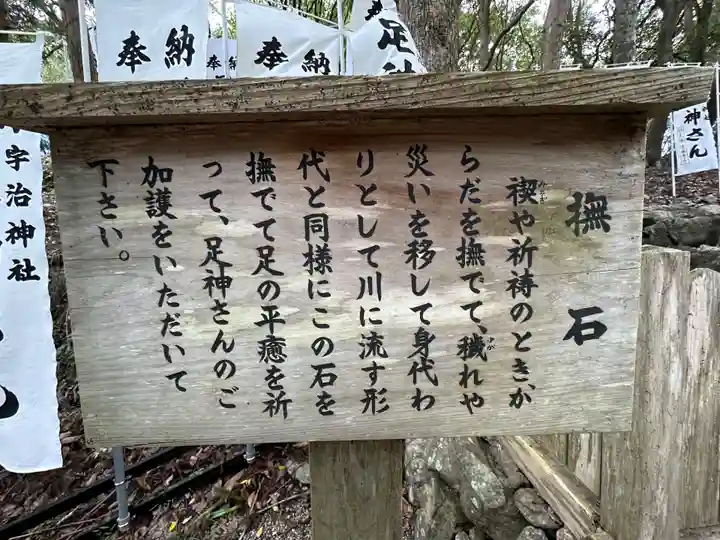 撫石
禊や祈祷のとき、か
みそぎ
らだを撫でて、穢れや
けが
災いを移して身代わ
りとして川に流す形
代と同様にこの石を
撫でて足の平癒を祈
って、足神さんのご
加護をいただいて
下さい。
奉納
奉納
奉納
足神
神さん
宇治神社